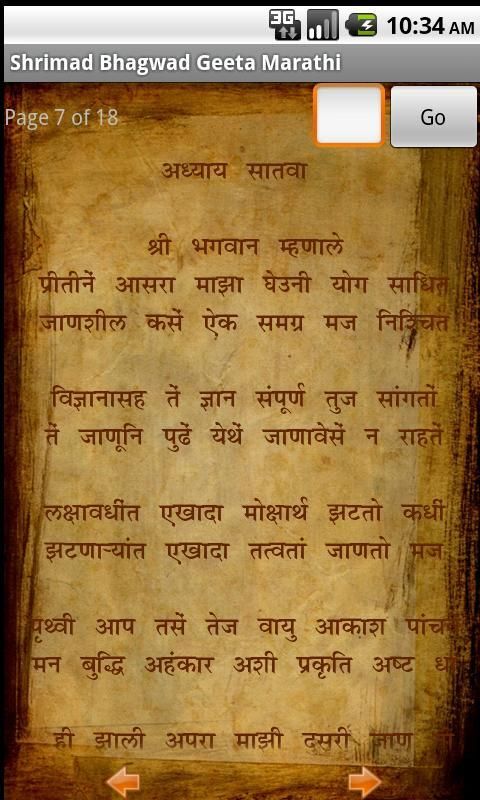 3G 10:34 AM
Shrimad Bhagwad Geeta Marathi
Page 7 of 18 Go
अध्याय सातवा
श्री भगवान म्हणाले
प्रीतीनें आसरा माझा घेउनी योग साधित
जाणशील कसें ऐक समग्र मज निश्चित
विज्ञानासह तें ज्ञान संपूर्ण तुज सांगतों
तें जाणूनि पुढें येथें जाणावेसें न राहतें
लक्षावधींत एखादा मोक्षार्थ झटतो कधीं
झटणाऱ्यांत एखादा तत्वतां जाणतो मज
पृथ्वी आप तसें तेज वायु आकाश
मन बुद्धि अहंकार अशी प्रकृति अष्ट
ही झाली अपरा माझी दुसरी जाण